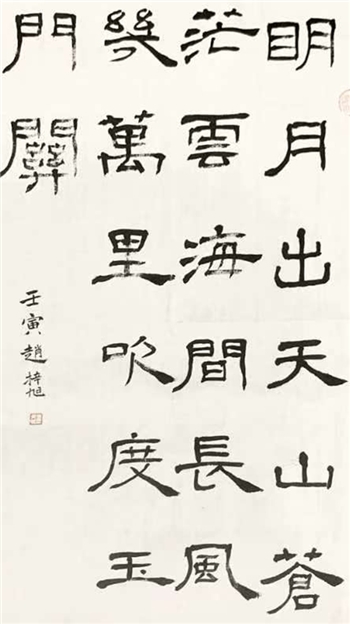 明月出天山蒼
茫雲海間長風
幾萬里吹度玉
門關
壬寅趙梓旭